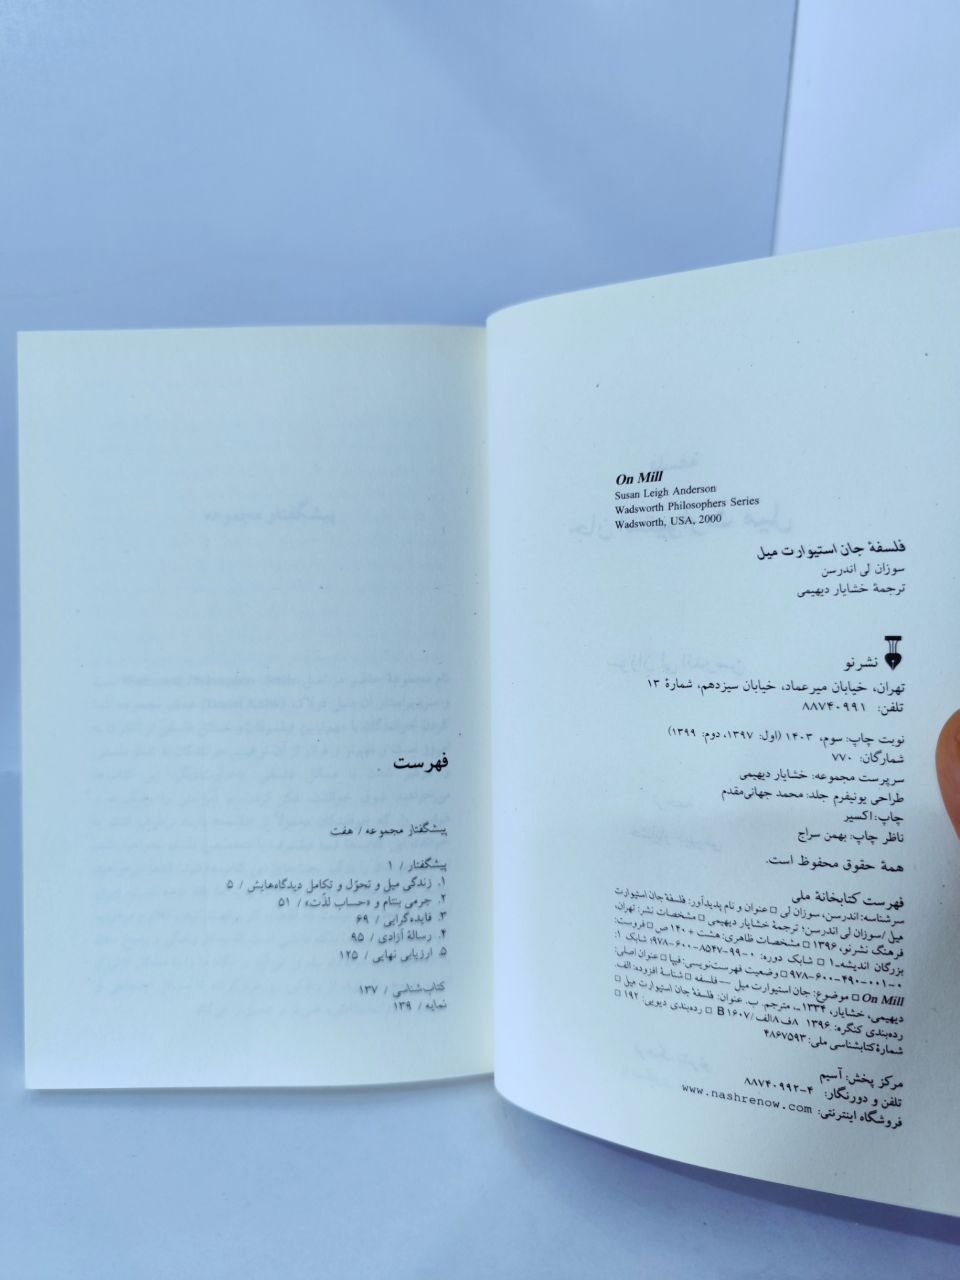 On Mill
Susan Leigh Anderson
Wadsworth Philosophers Series
Wadsworth, USA, 2000
فلسفهٔ جان استیوارت میل
سوزان لی اندرسن
ترجمهٔ خشایار دیهیمی
نشرنو
تهران، خیابان میرعماد، خیابان سیزدهم، شمارهٔ ۱۳
تلفن: ۸۸۷۴۰۹۹۱
نوبت چاپ: سوم، ۱۴۰۳ (اول: ۱۳۹۷، دوم: ۱۳۹۹)
شمارگان: ۷۷۰
سرپرست مجموعه: خشایار دیهیمی
طراحی یونیفرم جلد: محمد جهانی‌مقدم
چاپ: اکسیر
ناظر چاپ: بهمن سراج
همهٔ حقوق محفوظ است.
فهرست کتابخانهٔ ملی
سرشناسه: اندرسن، سوزان لی □ عنوان و نام پدیدآور: فلسفهٔ جان استیوارت
میل/سوزان لی اندرسن؛ ترجمهٔ خشایار دیهیمی □ مشخصات نشر: تهران،
فرهنگ نشرنو، ۱۳۹۶ □ مشخصات ظاهری: هشت + ۱۴۰ ص □ فروست:
بزرگان اندیشه-۱ □ شابک دوره: ۰-۹۹-۸۵۴۷-۶۰۰-۹۷۸؛ شابک ۱:
۰-۰۰۱-۴۹۰-۶۰۰-۹۷۸ □ وضعیت فهرست‌نویسی: فیپا □ عنوان اصلی:
On Mill □ موضوع: جان استیوارت میل — فلسفه □ شناسهٔ افزوده: الف.
دیهیمی، خشایار، ۱۳۳۴ـ، مترجم. ب. عنوان: فلسفهٔ جان استیوارت میل □
رده‌بندی کنگره: ۱۳۹۶ ۸ف۸الف/B ۱۶۰۷ □ رده‌بندی دیویی: ۱۹۲ □
شمارهٔ کتابشناسی ملی: ۴۸۶۷۵۹۳
مرکز پخش: آسیم
تلفن و دورنگار: ۴-۸۸۷۴۰۹۹۲
فروشگاه اینترنتی: www.nashrenow.com
فهرست
پیشگفتار مجموعه / هفت
پیشگفتار / ۱
۱. زندگی میل و تحوّل و تکامل دیدگاه‌هایش / ۵
۲. جرمی بنتام و «حساب لذّت» / ۵۱
۳. فایده‌گرایی / ۶۹
۴. رسالهٔ آزادی / ۹۵
۵. ارزیابی نهایی / ۱۲۵
کتاب‌شناسی / ۱۳۷
نمایه / ۱۳۹